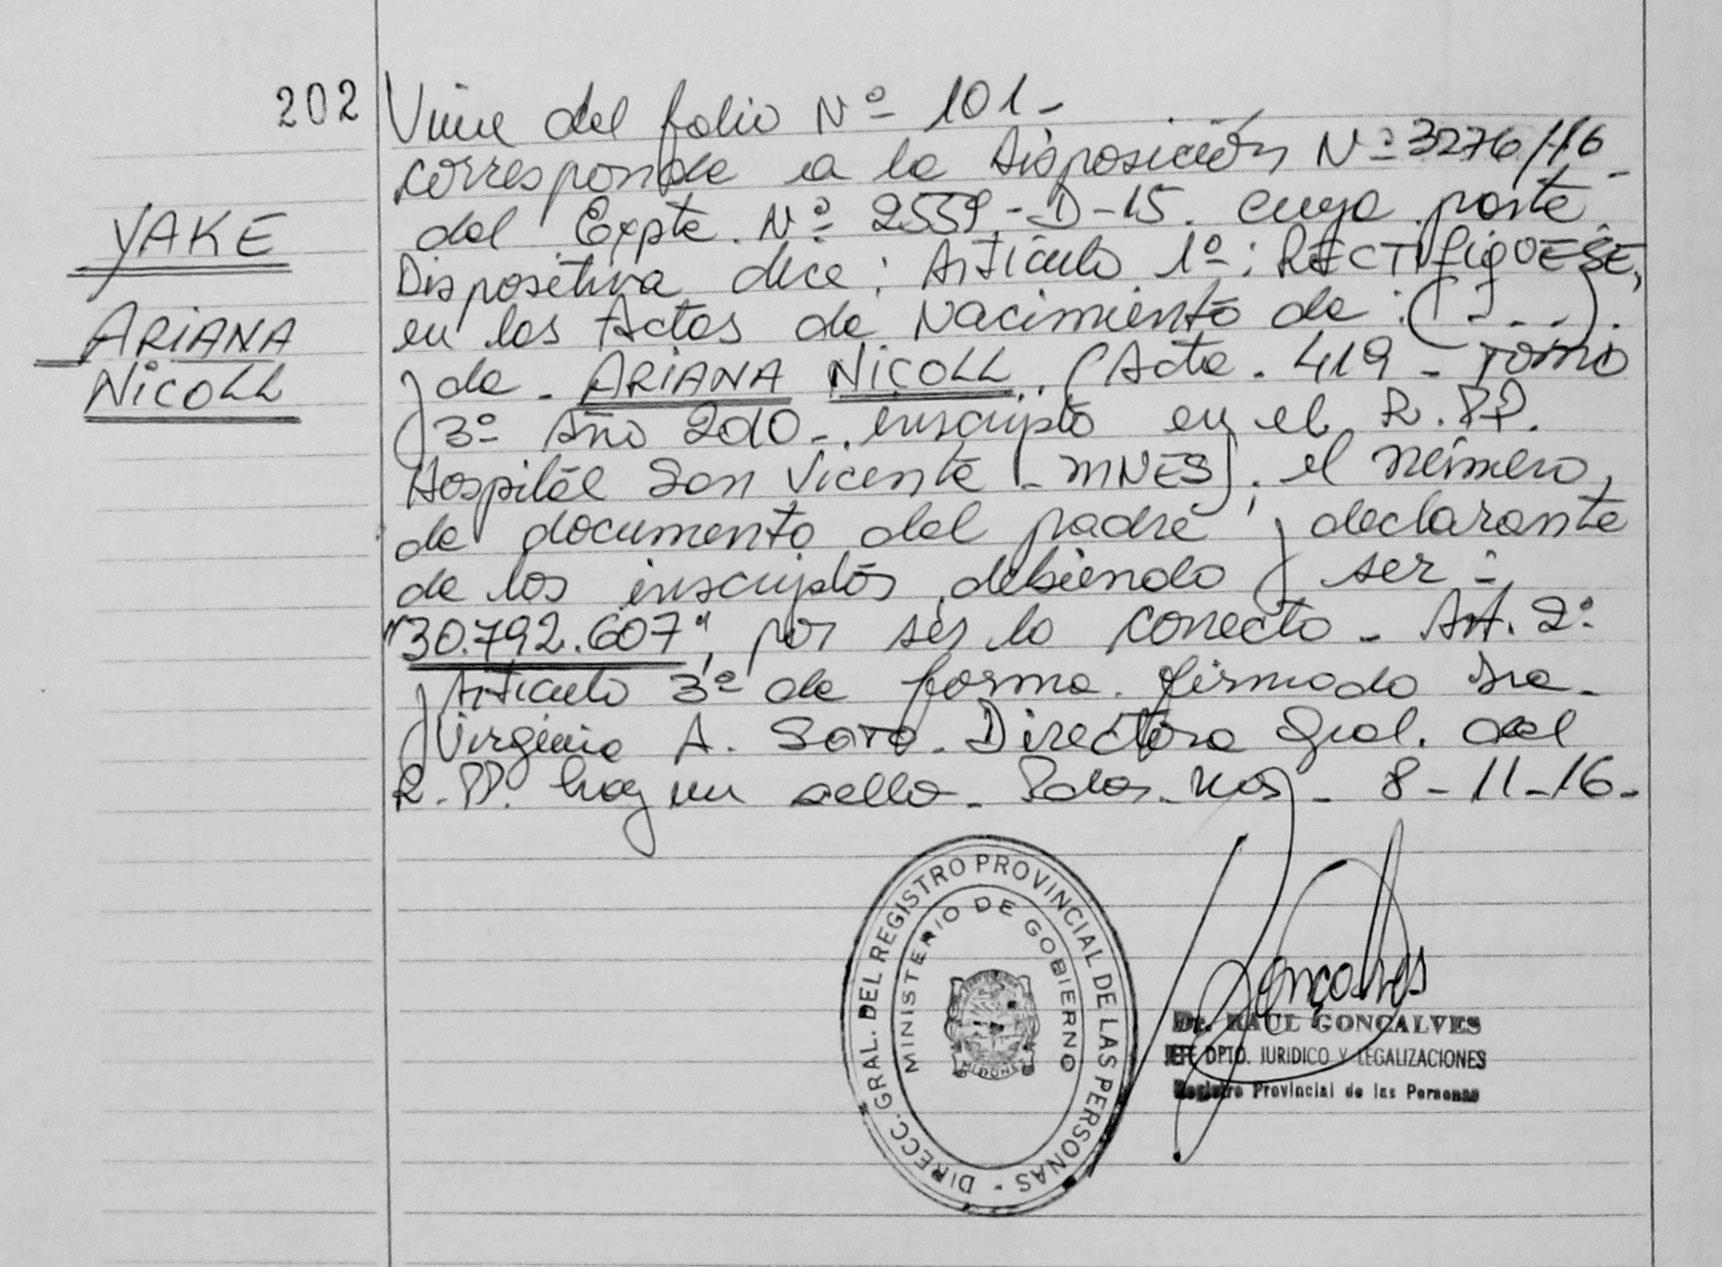 202
Viene del folio Nº 101-
corresponde a la Disposición Nº 3276/16
del Expte. Nº 2559-D-15. cuya parte
Dispositiva dice: Artículo 1º: RECTIFIQUESE,
en las Actas de Nacimiento de: (- - -).
y de - ARIANA NICOLL. (Acta. 419 - Tomo
3º Año 2010-. inscripta en el R.PP.
Hospital San Vicente - MNES), el número
de documento del padre y declarante
de los inscriptos, debiendo ser:
"30.792.607", por ser lo correcto - Art. 2º
y Artículo 3º de forma. firmado Dra.
Virginia A. Soto. Directora Gral. del
R.PP. hay un sello. Pdas. Mnes - 8-11-16-
YAKE
ARIANA
NICOLL
DIRECC. GRAL. DEL REGISTRO PROVINCIAL DE LAS PERSONAS -
MINISTERIO DE GOBIERNO
MISIONES
Gonçalves
Dr. RAUL GONCALVES
JEFE DPTO. JURIDICO Y LEGALIZACIONES
Registro Provincial de las Personas